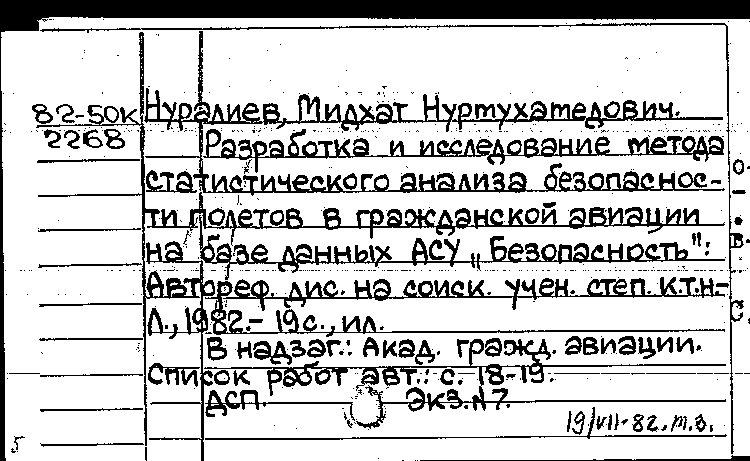 82-50к
2268
Нуралиев, Мидхат Нуртухамедович.
Разработка и исследование метода
статистического анализа безопаснос-
ти полетов в гражданской авиации
на базе данных АСУ „Безопасность":
Автореф. дис. на соиск. учен. степ. к.т.н-
Л., 1982.- 19с., ил.
В надзаг.: Акад. гражд. авиации.
Список работ авт.: с. 18-19.
ДСП. Экз.№7.
19/VII-82.т.з.
5